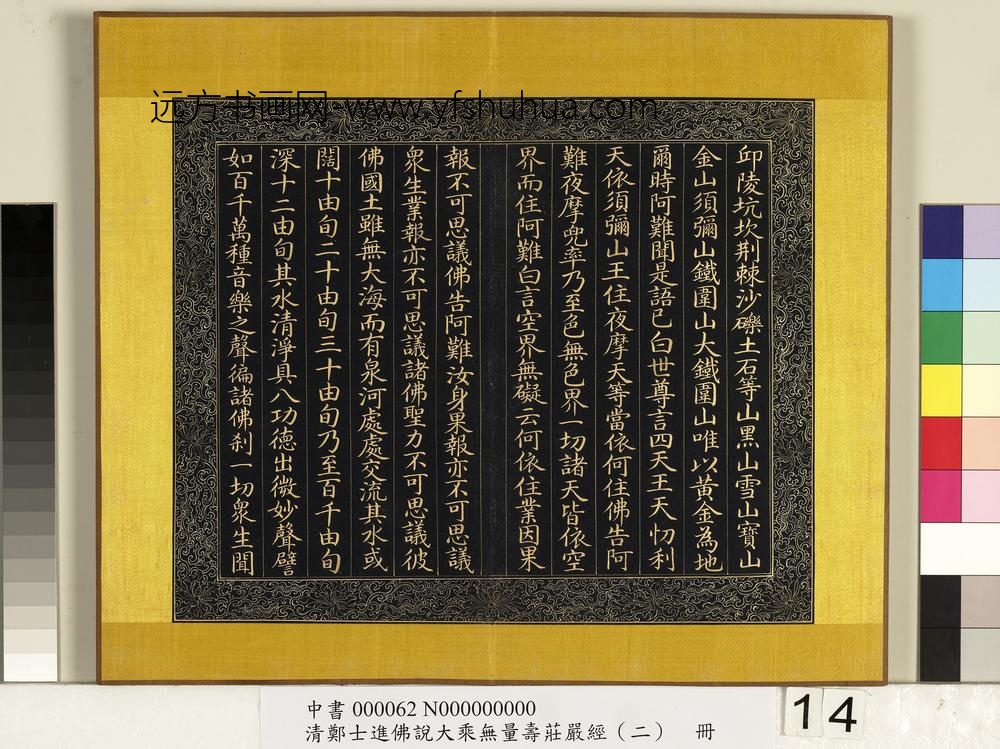 远方书画网-www.yfshuhua.com
邱陵坑坎荆棘沙礫土石等山黑山雪山寶山
金山須彌山鐵圍山大鐵圍山唯以黄金為地
爾時阿難聞是語已白世尊言四天王天忉利
天依須彌山王住夜摩天等當依何住佛告阿
難夜摩兜率乃至色無色界一切諸天皆依空
界而住阿難白言空界無礙云何依住業因果
報不可思議佛告阿難汝身果報亦不可思議
衆生業報亦不可思議諸佛聖力不可思議彼
佛國土雖無大海而有泉河處處交流其水或
闊十由旬二十由旬三十由旬乃至百千由旬
深十二由旬其水清淨具八功德出微妙聲譬
如百千萬種音樂之聲徧諸佛刹一切衆生聞
中書 000062 N000000000
清鄭士進佛說大乘無量壽莊嚴經（二） 冊
14